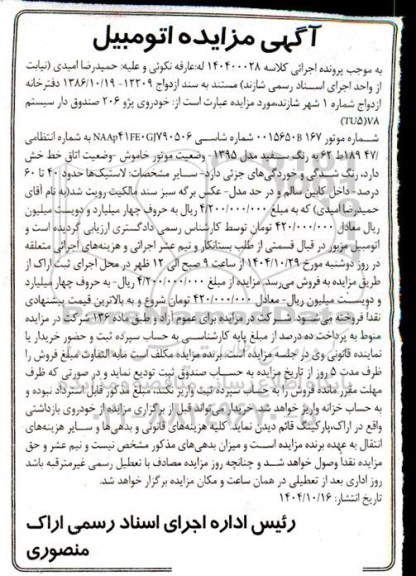 آگهی مزایده اتومبیل
به موجب پرونده اجرائی کلاسه ۱۴۰۴۰۰۰۲۸ له:عارفه نکوئی و علیه: حمیدرضا امیدی (نیابت
از واحد اجرای اسناد رسمی شازند) مستند به سند ازدواج ۱۲۲۰۹- ۱۳۸۶/۱۰/۱۹ دفترخانه
ازدواج شماره ۱ شهر شازند،مورد مزایده عبارت است از: خودروی پژو ۲۰۶ صندوق دار سیستم
(TU۵)V۸
شماره موتور ۱۶۷B۰۰۱۵۶۵۰ شماره شاسی NAAp۴۱FE۰GJ۷۹۰۵۰۶ به شماره انتظامی
۴۷/ ۱۸۹ط۶۲ به رنگ سفید مدل ۱۳۹۵- وضعیت موتور خاموش -وضعیت اتاق خط خش
دارد، رنگ شدگی و خوردگی‌های جزئی دارد- سایر مشخصات: لاستیک‌ها حدود ۴۰ تا ۶۰
درصد- داخل کابین سالم و در حد مدل- عکس برگه سبز سند مالکیت رویت شد(به نام آقای
حمیدرضا امیدی) که به مبلغ ۴/۲۰۰/۰۰۰/۰۰۰ ریال به حروف چهار میلیارد و دویست میلیون
ریال معادل ۴۲۰/۰۰۰/۰۰۰ تومان توسط کارشناس رسمی دادگستری ارزیابی گردیده است و
اتومبیل مزبور در قبال قسمتی از طلب بستانکار و نیم عشر اجرائی و هزینه‌های اجرائی متعلقه
در روز دوشنبه مورخ ۱۴۰۴/۱۰/۲۹ از ساعت ۹ صبح الی ۱۲ ظهر در محل اجرای ثبت اراک از
طریق مزایده به فروش می‌رسد. مزایده از مبلغ ۴/۲۰۰/۰۰۰/۰۰۰ ریال- به حروف چهار میلیارد
و دویست میلیون ریال- معادل ۴۲۰/۰۰۰/۰۰۰ تومان شروع و به بالاترین قیمت پیشنهادی
نقداً فروخته می‌شود شرکت در مزایده برای عموم آزاد و طبق ماده ۱۳۶ شرکت در مزایده
منوط به پرداخت ده درصد از مبلغ پایه کارشناسی به حساب سپرده ثبت و حضور خریدار یا
نماینده قانونی وی در جلسه مزایده است. برنده مزایده مکلف است مابه التفاوت مبلغ فروش را
ظرف مدت ۵ روز از تاریخ مزایده به حساب صندوق ثبت تودیع نماید و در صورتی که ظرف
مهلت مقرر مانده فروش را به حساب سپرده ثبت واریز نکند، مبلغ مذکور قابل استرداد نبوده و
به حساب خزانه واریز خواهد شد. خریدار می‌تواند قبل از برگزاری مزایده از خودروی بازداشتی
واقع در اراک،پارکینگ قائم دیدن نماید. کلیه هزینه‌های قانونی و بدهی‌ها و سایر هزینه‌های
انتقال به عهده برنده مزایده است و میزان بدهی‌های مذکور مشخص نیست و نیم عشر و حق
مزایده نقداً وصول خواهد شد و چنانچه روز مزایده مصادف با تعطیل رسمی غیرمترقبه باشد
روز اداری بعد از تعطیلی در همان ساعت و مکان مزایده برگزار خواهد شد.
تاریخ انتشار: ۱۴۰۴/۱۰/۱۶
رئیس اداره اجرای اسناد رسمی اراک
منصوری